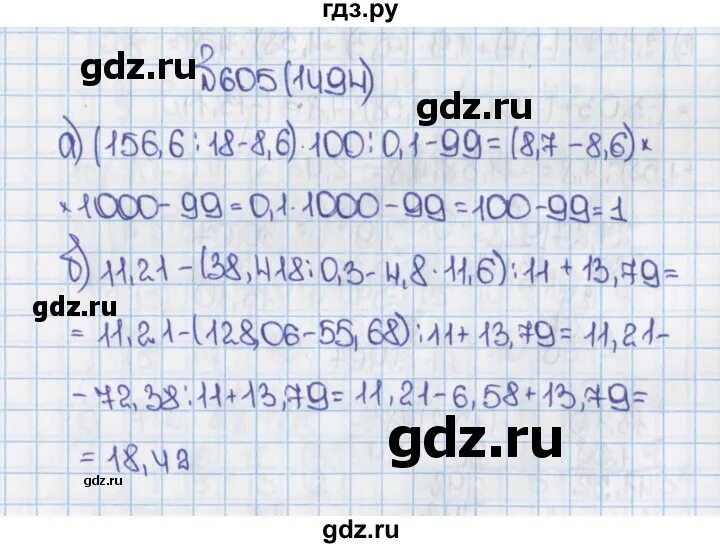 гдз.ру
gdz.ru
№605(1494)
gdz.ru
а) (156,6:18-8,6)·100:0,1-99=(8,7-8,6)×
×1000-99=0,1·1000-99=100-99=1
б) 11,21-(38,418:0,3-4,8·11,6):11+13,79=
gdz.ru
=11,21-(128,06-55,68):11+13,79=11,21-
-72,38:11+13,79=11,21-6,58+13,79=
=18,42
gdz.ru
gdz.ru
gdz.ru